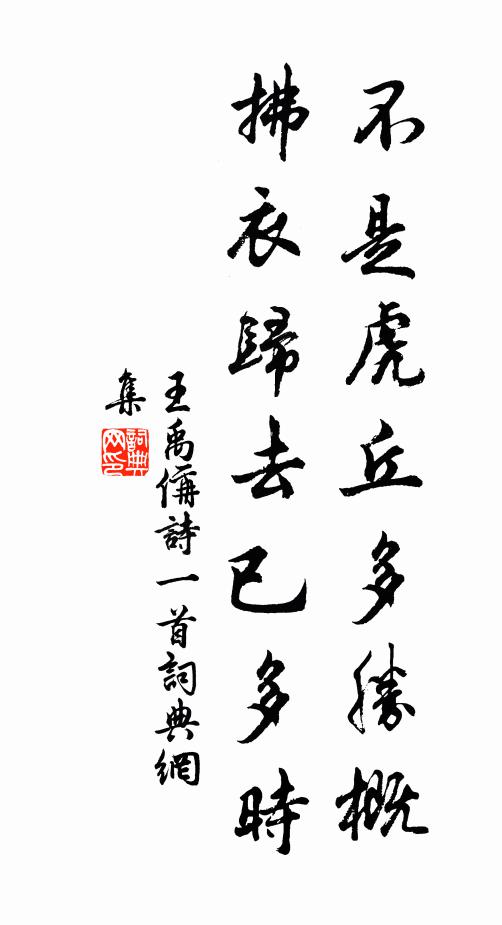 不是虎丘多勝概
拂衣歸去已多時
王禹偁詩一首詞典網
集
詞典
网印